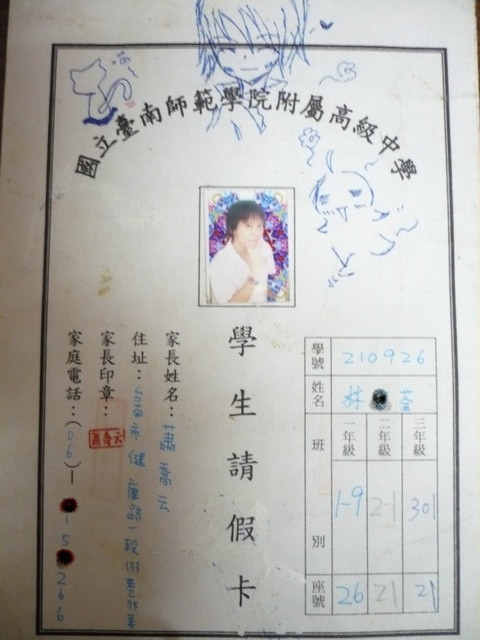 國立臺南師範學院附屬高級中學
學生請假卡
學號 210926
姓名 林 荃
班別 一年級 二年級 三年級
1-9 2-1 301
座號 26 21 21
家長姓名：蕭喬云
住址：台南市健康路一段
家長印章：
家庭電話：(06)-